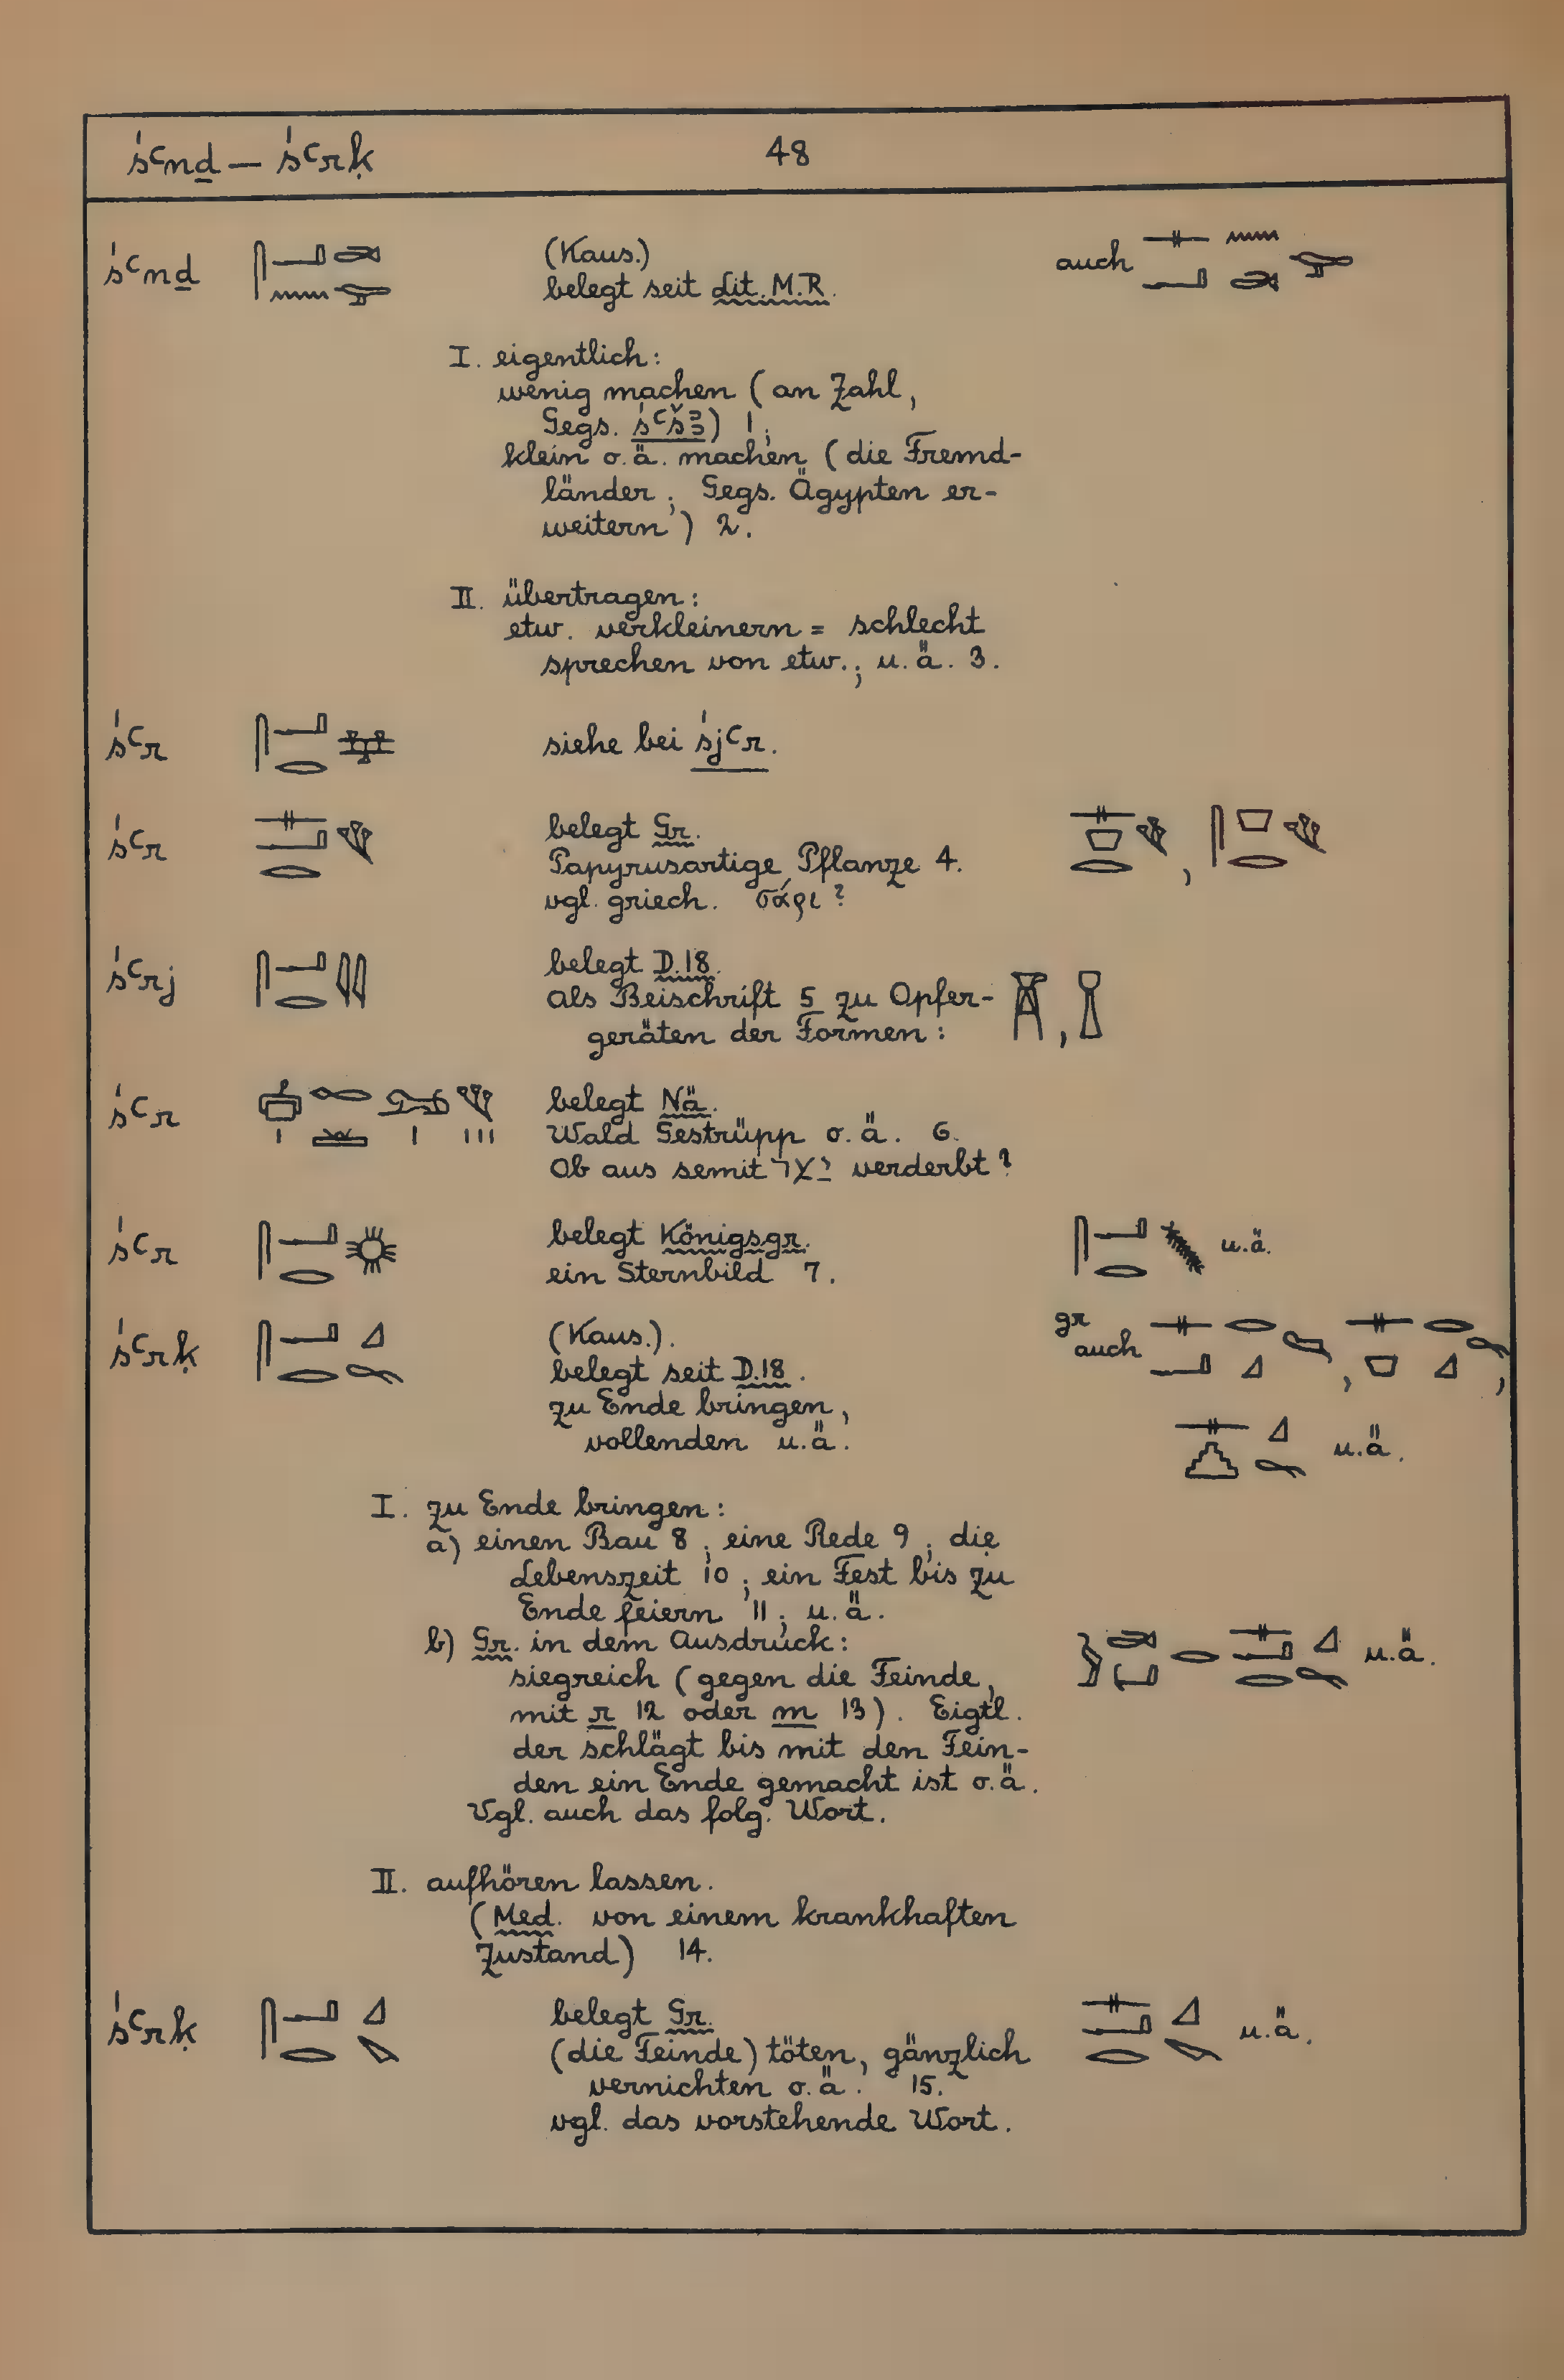 śꜥnḏ — śꜥrḳ 48
śꜥnḏ (Kaus.)
belegt seit Lit. M.R. auch
I. eigentlich:
wenig machen (an Zahl,
Gegs. śꜥšꜣ) 1;
klein o.ä. machen (die Fremd-
länder; Gegs. Ägypten er-
weitern) 2.
II. übertragen:
etw. verkleinern = schlecht
sprechen von etw.; u.ä. 3.
śꜥr siehe bei śjꜥr.
śꜥr belegt Gr.
Papyrusartige Pflanze 4.
vgl. griech. σάρι?
śꜥrj belegt D.18.
als Beischrift 5 zu Opfer-
geräten der Formen:
śꜥr belegt Nä.
Wald Gestrüpp o.ä. 6.
Ob aus semit. יער verderbt?
śꜥr belegt Königsgr.
ein Sternbild 7. u.ä.
śꜥrḳ (Kaus.). gr
auch
belegt seit D.18.
zu Ende bringen,
vollenden u.ä. u.ä.
I. zu Ende bringen:
a) einen Bau 8; eine Rede 9; die
Lebenszeit 10; ein Fest bis zu
Ende feiern 11; u.ä.
b) Gr. in dem Ausdruck: u.ä.
siegreich (gegen die Feinde,
mit r 12 oder m 13). Eigtl.
der schlägt bis mit den Fein-
den ein Ende gemacht ist o.ä.
Vgl. auch das folg. Wort.
II. aufhören lassen.
(Med. von einem krankhaften
Zustand) 14.
śꜥrḳ belegt Gr. u.ä.
(die Feinde) töten, gänzlich
vernichten o.ä. 15.
vgl. das vorstehende Wort.